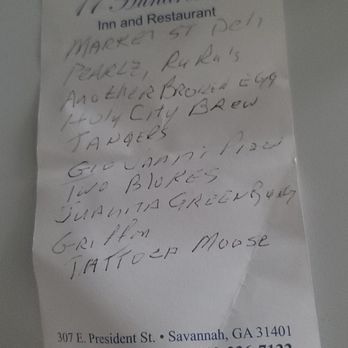 17
Inn and Restaurant
MARKET ST DELI
PEARLZ, RuRu's
ANOTHER BROKEN EGG
HOLY CITY BREW
TANGERS
GIOVANNI
TWO BLOKES
JUANITA GREENBERG
GRIFFIN
TATTOED MOOSE
307 E. President St. • Savannah, GA 31401